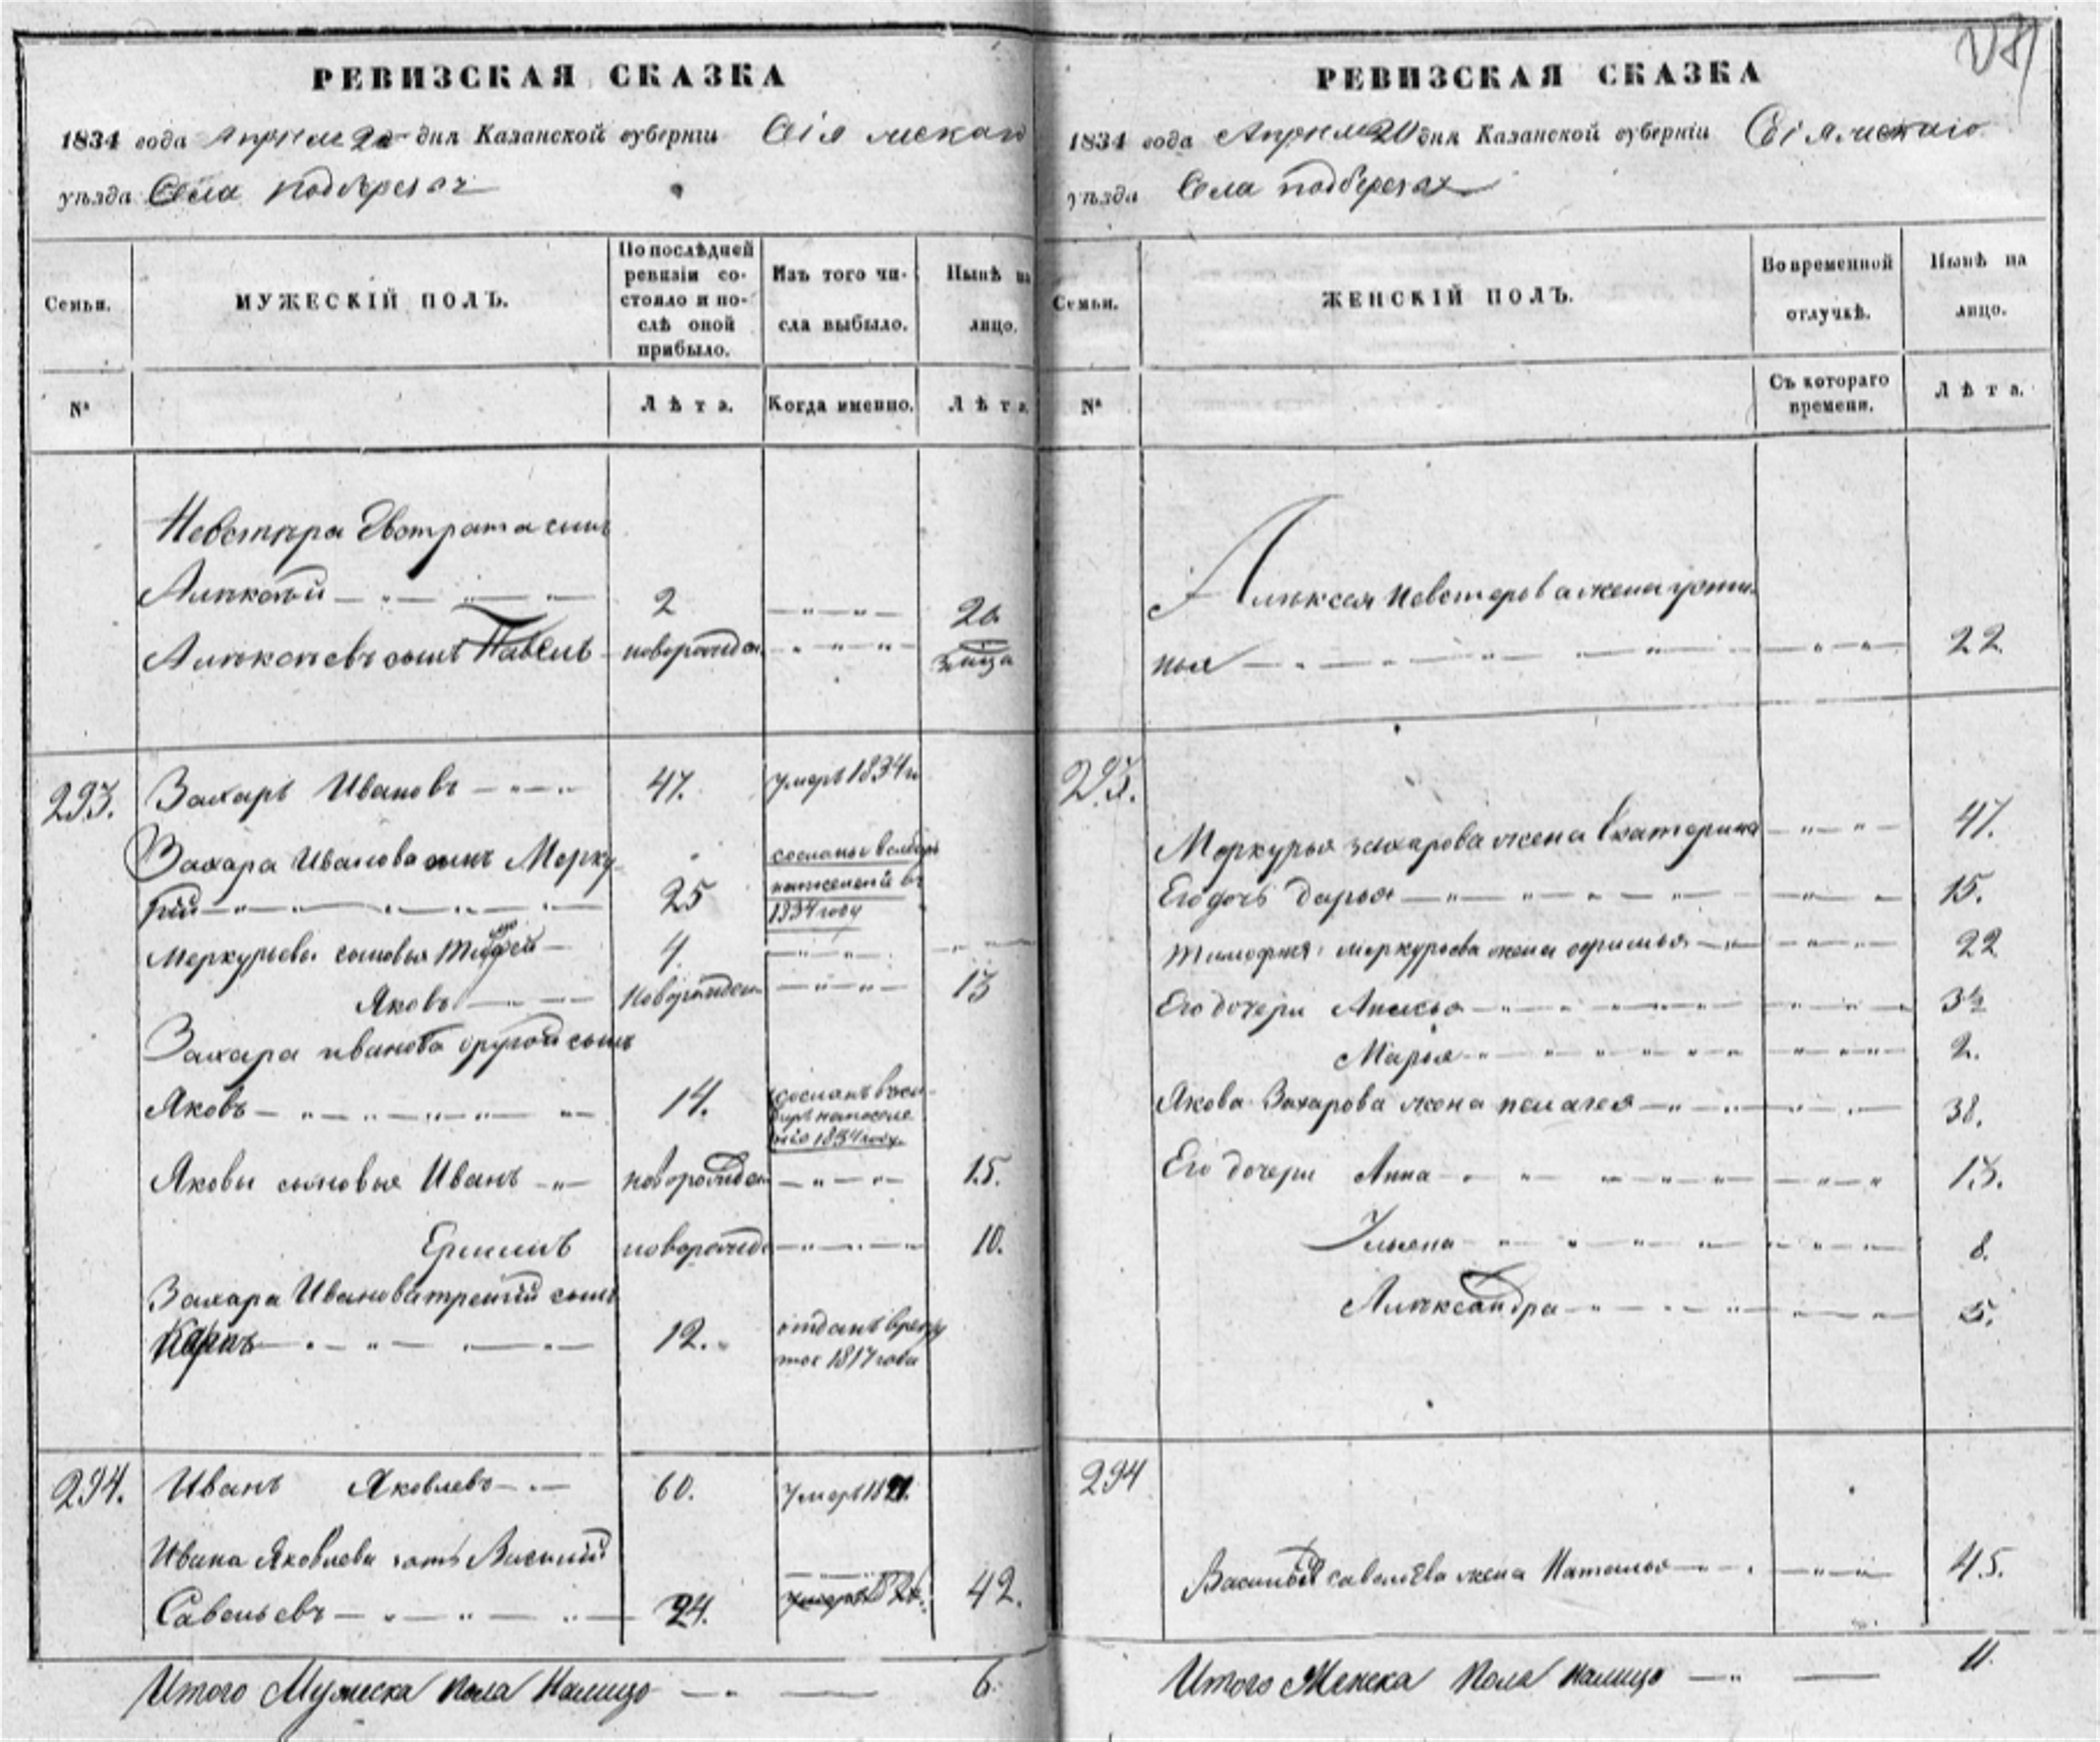 РЕВИЗСКАЯ СКАЗКА
1834 года Апреля 20 дня Казанской губерніи Свіяжскаго
уѣзда Села подберезья
Семьи.
МУЖЕСКІЙ ПОЛЪ.
По послѣдней
ревизіи со-
стояло и по-
слѣ оной
прибыло.
Изъ того чи-
сла выбыло.
Нынѣ на
лицо.
№
Лѣта.
Когда именно.
Лѣта
Невстера Евстрата сынъ
Алѣксѣй 2 20
Алѣксѣевъ сынъ Павелъ новорожден.
293. Захаръ Ивановъ 47. умеръ 1834
Захара Иванова сынъ Мерку
рій 25 сосланы в
1834 году
Меркурьевы сыновья Тимофей 4
Яковъ новорожден 13
Захара иванова другой сынъ
Яковъ 14. сосланъ в си
биръ на посѣле
ніе 1834 году.
Якова сыновья Иванъ новорожден 15.
Ермилъ новорожде 10.
Захара Иванова третій сынъ
Карпъ 12. отданъ врекру
ты 1817 года
294. Иванъ Яковлевъ 60. умеръ 1821.
Ивана Яковлева зять Василій
Савельевъ 24. 42.
Итого Мужеска пола налицо 6.
РЕВИЗСКАЯ СКАЗКА
1834 года Апреля 20 дня Казанской губерніи Свіяжскаго
уѣзда Села подберезья
Семьи.
ЖЕНСКІЙ ПОЛЪ.
Во временной
отлучкѣ.
Нынѣ на
лицо.
№
Съ котораго
времени.
Лѣта.
Алѣксея Невстерова жена усти
нья 22
293.
Меркурья захарова жена Екатерина 47.
Его дочь дарья 15.
Тимофея меркурьева жена 22
Его дочери Анисья 3½
Марья 2.
Якова Захарова жена пелагея 38.
Его дочери Анна 13.
Ульяна 8.
Алѣксандра 5.
294
Василья савельева жена Наталья 45.
Итого Женска пола налицо 11.